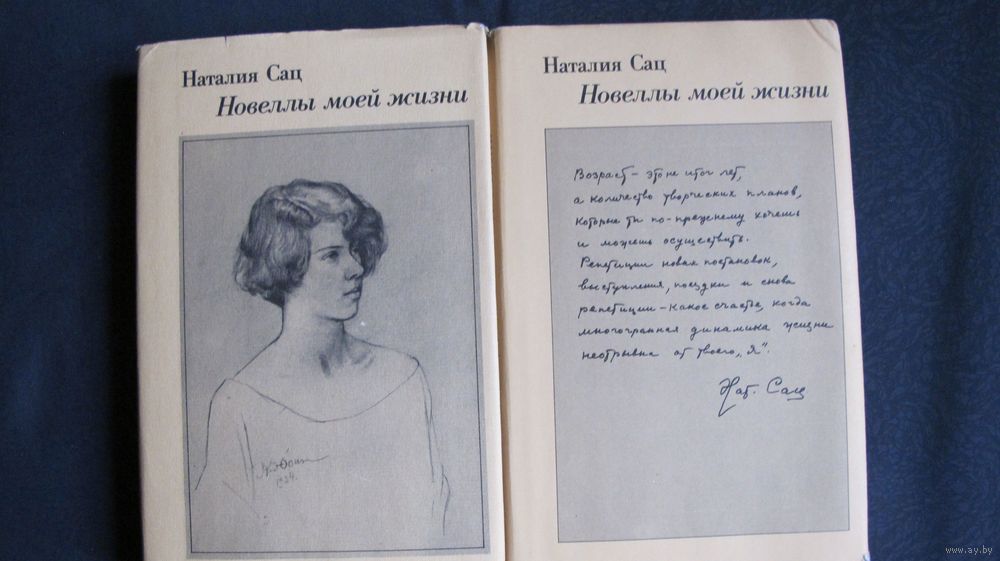 Наталия Сац
Новеллы моей жизни
1924.
Наталия Сац
Новеллы моей жизни
Возраст — это не итог лет,
а количество творческих планов,
которые ты по-прежнему хочешь
и можешь осуществить.
Репетиции новых постановок,
выступления, поездки и снова
репетиции — какое счастье, когда
многогранная динамика жизни
неотрывна от твоего „Я".
Нат. Сац
www.ay.by